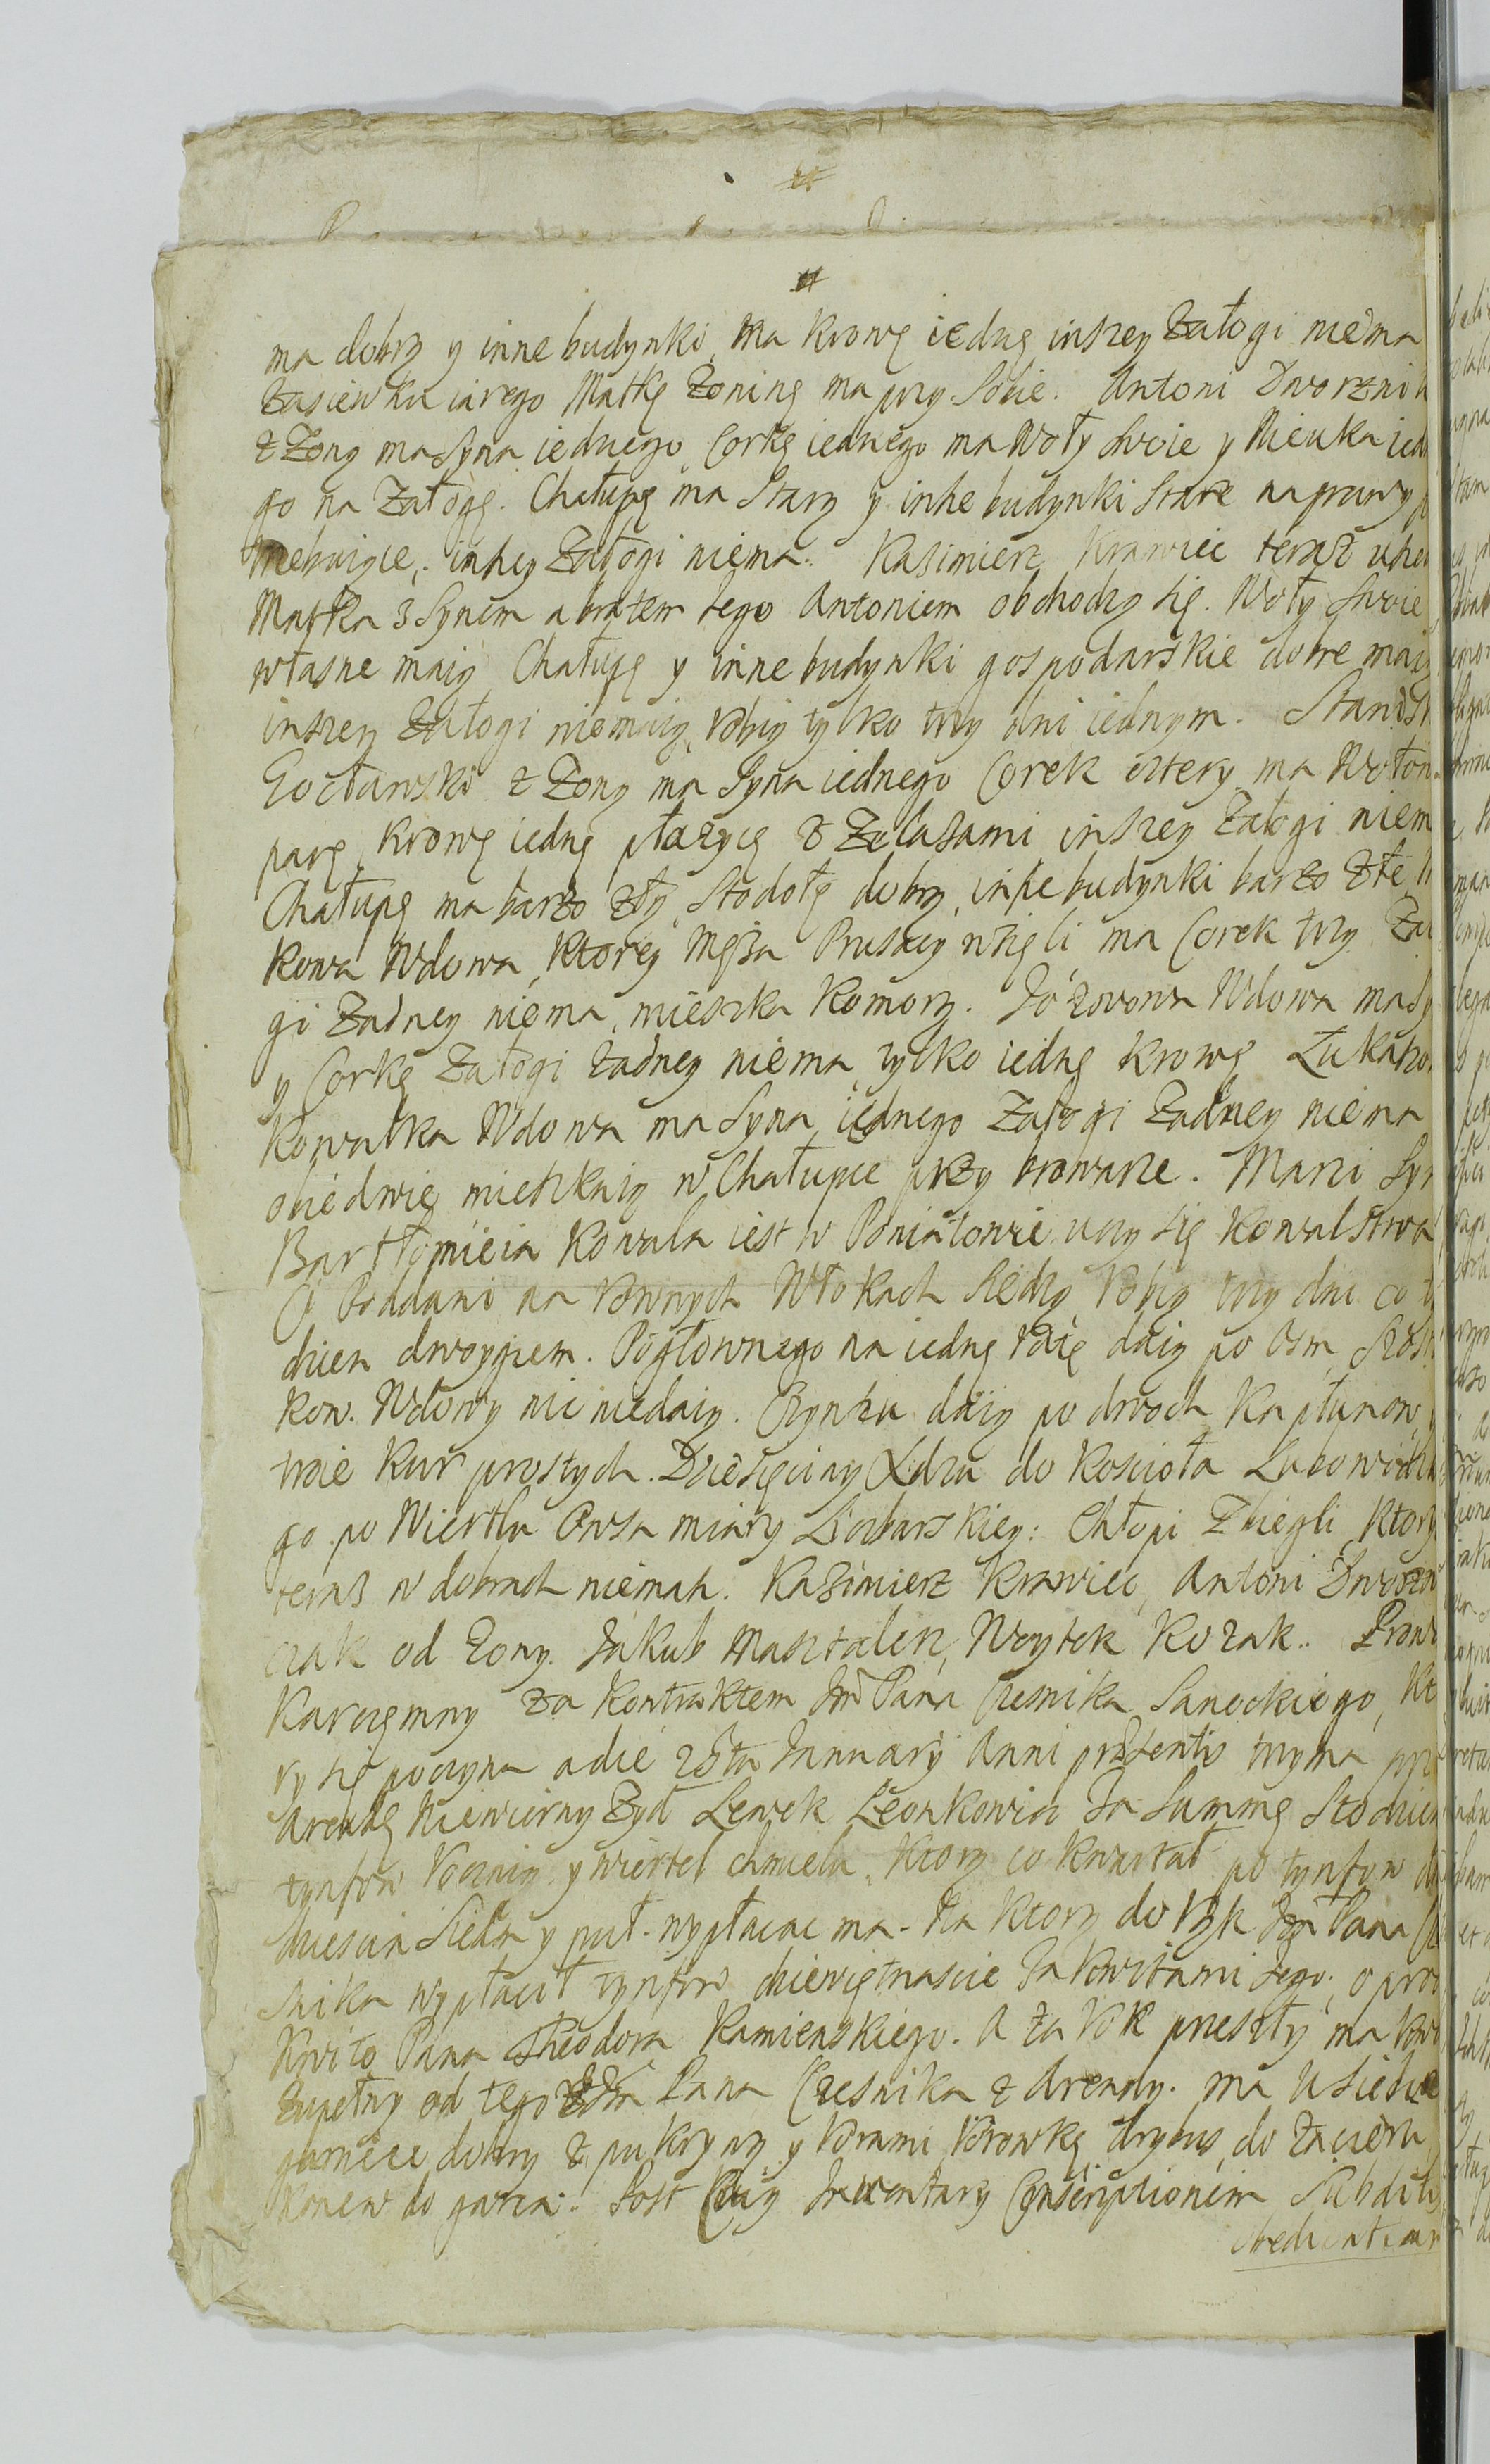 ma dobrą y inne budynki, ma krowę iedną inszey Załogi niema
Zasiewku iarego Matkę Zoninę ma przy sobie. Antoni Dworzni
z Zoną ma syna iednego, Corkę iednego ma Woły dwoie y Nieuka ied
go na Załogę. Chałupę ma Starą y inne budynki Stare naprawy
trzebuiące, inszey Załogi niema. Kasimierz Krawiec teraz
Matka z Synem a bratem tego Antoniem obchodzą się. Woły dwoie
własne maią Chałupę y inne budynki gospodarskie dobre maią
inszey Załogi niemaią, Robią tylko trzy dni iednym. Stanis
Gocławski z Zoną ma Syna iednego Corek cztery ma Wołow
parę, Krowę iedną płużycę z Zelasami inszey Załogi niem
Chałupę ma barzo złą, Stodołę dobrą, insze budynki barzo złe,
kowa Wdowa, Ktorey Męża Prusacy wzięli ma Corek trzy Za
gi Zadney niema, mieszka Komorą. Józwowa Wdowa ma Sy
y Corkę Załogi żadney niema, tylko iedną krowę Łukaszo
Kowalka Wdowa ma Syna iednego Załogi Zadney niema
obiedwie mieszkaią w Chałupce przy browarze. Marci Syn
Bartłomieia Kowala iest w Poniatowie uczy się Kowalstwa
Ci Poddani na Rownych Włokach Siedzą Robią trzy dni co
dzien dwoygiem. Pogłownego na iedną Ratę daią po Osm Szos
kow. Wdowy nic niedaią. Czynszu daią po dwoch Kapłunow,
troie Kur prostych. Dziesięciny Xdzu do Koscioła Lubowidz
go po Wiertlu Owsa miary Lidzbarskiey: Chłopi Zbiegli, Ktory
teras w dobrach niemasz. Kazimierz Krawiec, Antoni Dworzn
czak od Zony. Jakub Masztalerz, Woytek Kozak.
Karczemny za Kontraktem Jm Pana Czesnika Sanockiego, Kt
ry się poczyna a die 25ta January Anni præsentis trzyma
Arendę Niewierny Zyd Lewek Leonkowicz Za Summę Sto
tynfow Roczniy y wiertel chmielu, Ktory co kwartał po tynfow
dziescia Siedm y puł. wypłacac ma. Na Ktory do Rąk Jm Pana
snika wypłacił tynfow dziewiętnascie Za Kwitami Iego, o
Kwito Pana Theodora Kamienskiego. A za Rok przeszły ma kwi
Zupełny od tego Pana Czesnika z Arendy. ma
garniec dobry z pukrywą y Rorami Korowkę drybus, do Zacieru
Konew do garca. Post Cuiq Inventary Conscriptionem Subditi